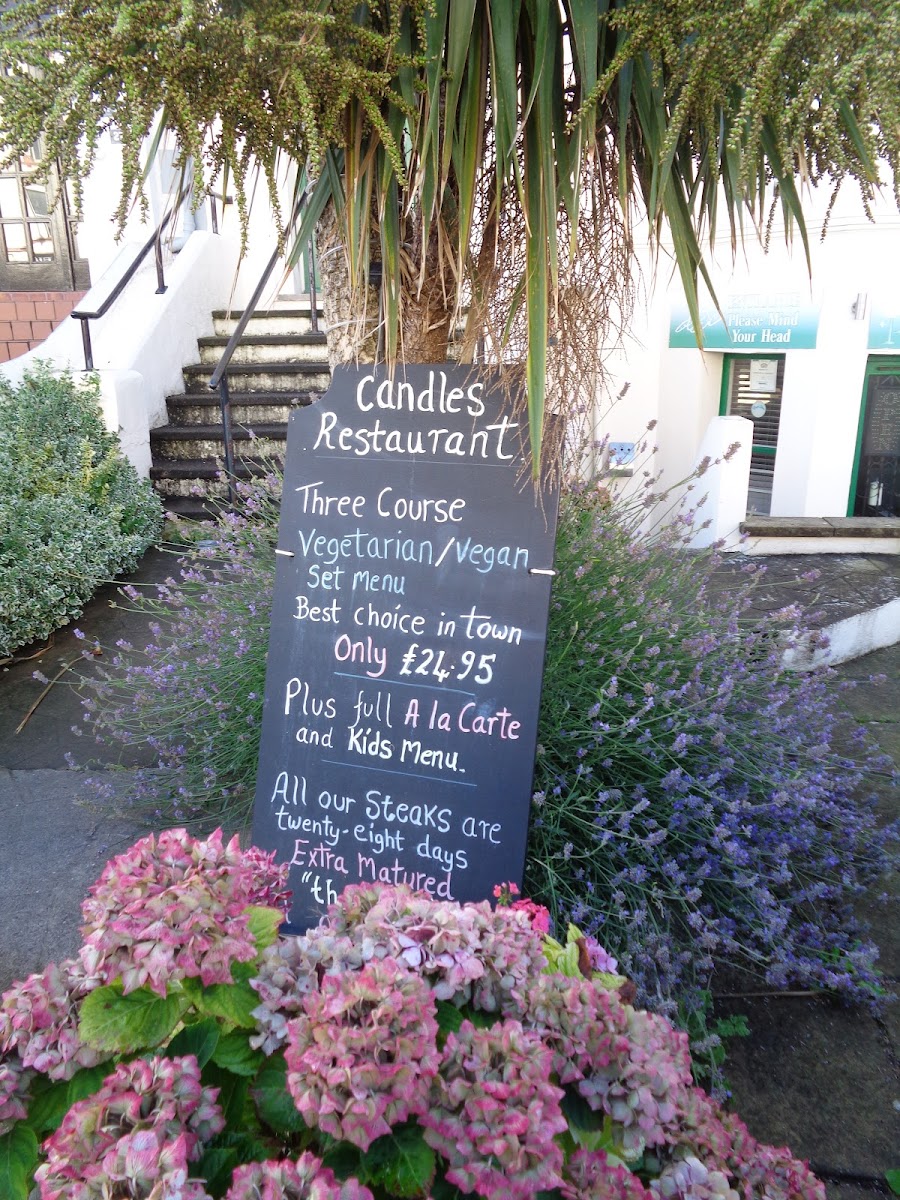 Candles
Restaurant
Three Course
Vegetarian/Vegan
Set menu
Best choice in town
Only £24.95
Plus full A la Carte
and Kids Menu.
All our Steaks are
twenty-eight days
Extra Matured
Please Mind
Your Head
OPEN